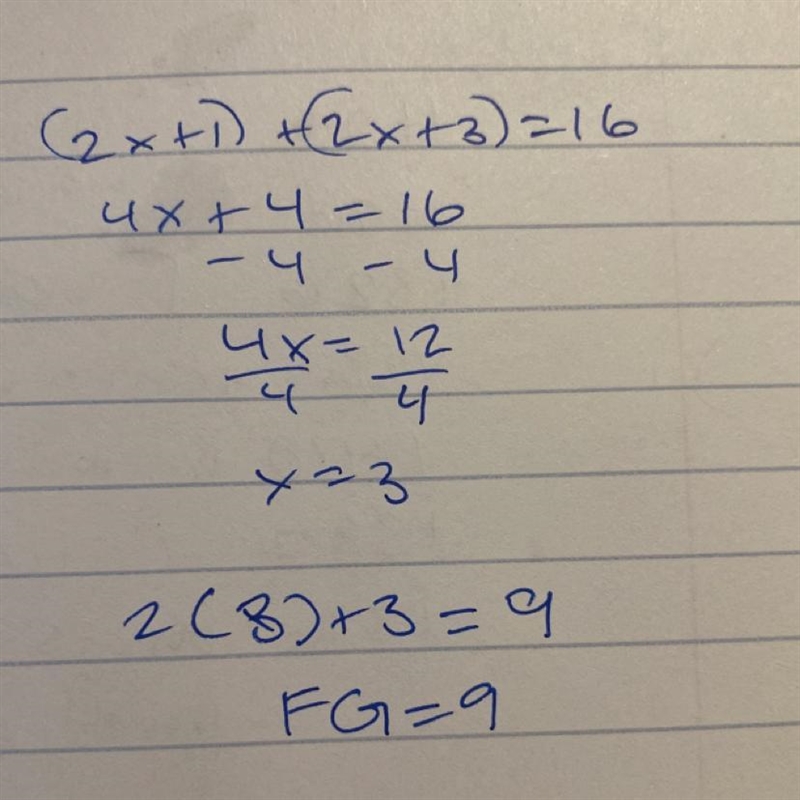 (2x+1) +(2x+3)=16
4x+4=16
-4 -4
4x= 12
4 4
x=3
2(3)+3=9
FG=9